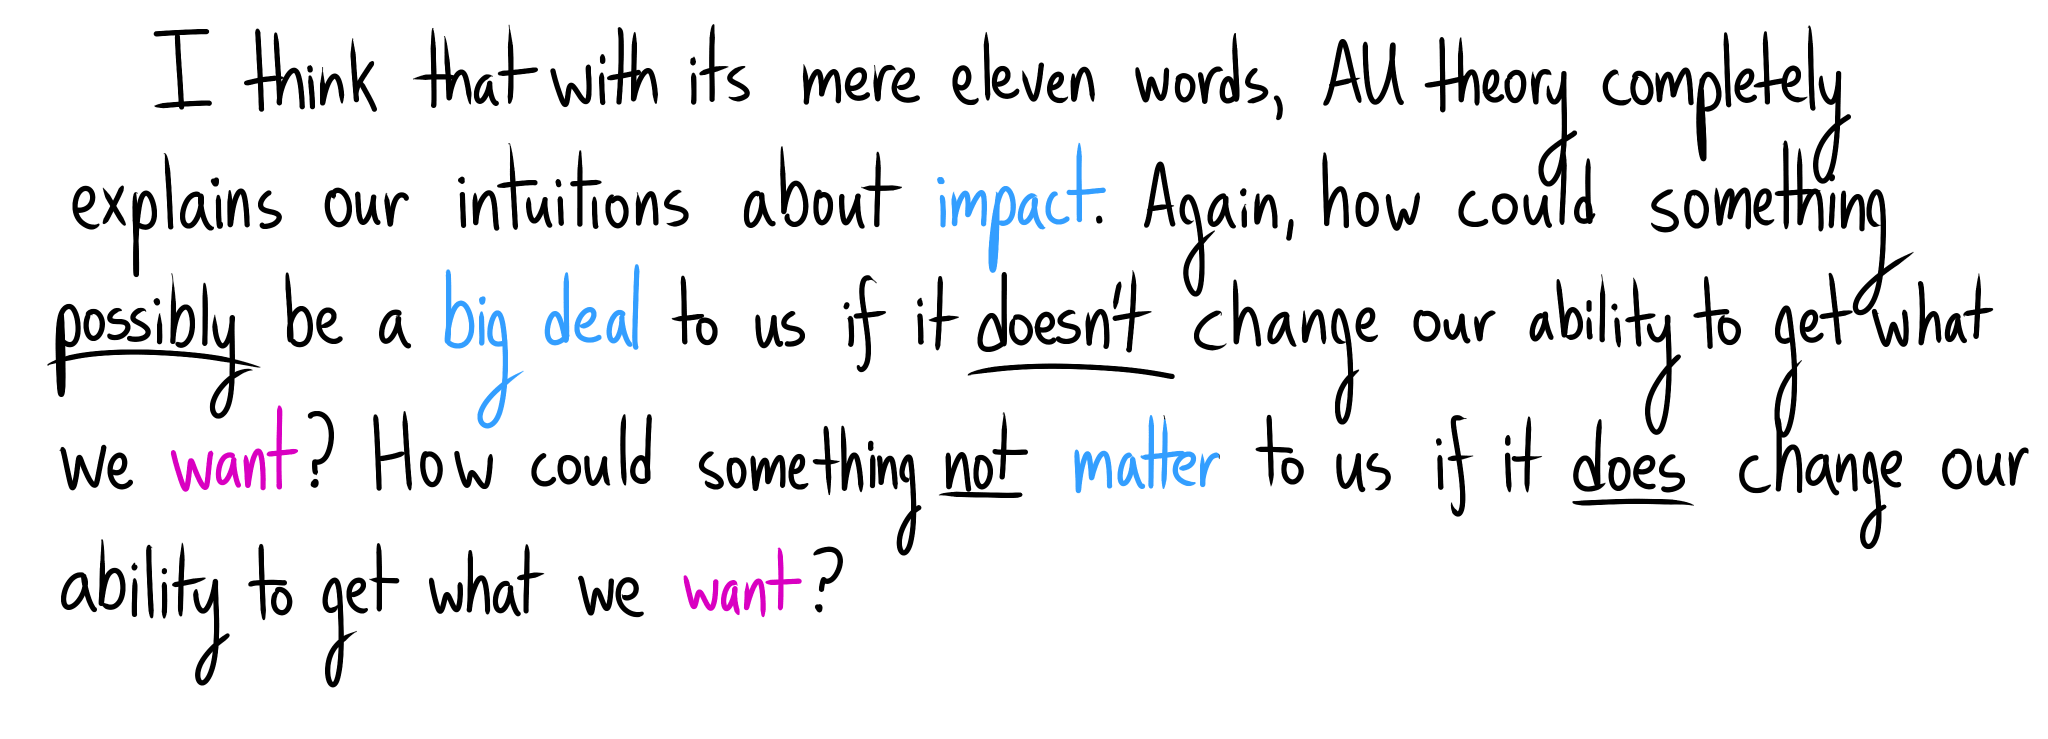 I think that with its mere eleven words, AU theory completely
explains our intuitions about impact. Again, how could something
possibly be a big deal to us if it doesn't change our ability to get what
we want? How could something not matter to us if it does change our
ability to get what we want?